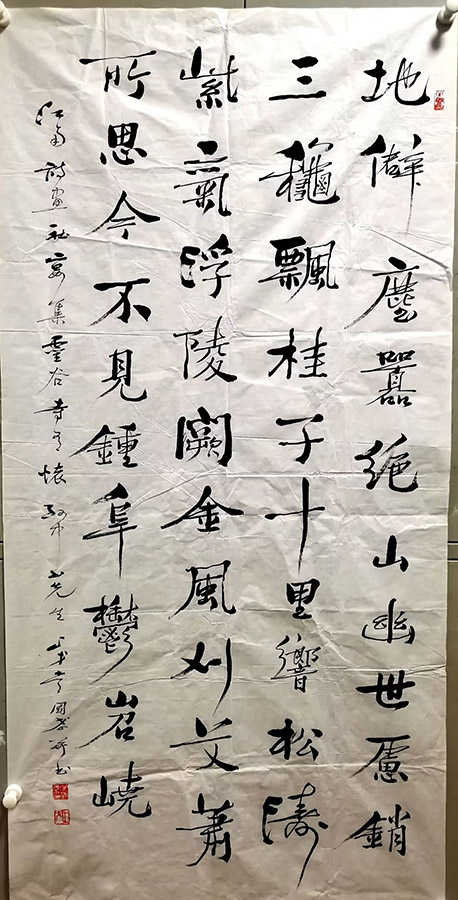 地僻塵囂絕山幽世慮銷
三龝飄桂子十里響松濤
紫氣浮陵闕金風刈艾蕭
所思今不見鍾阜鬱岧嶢
江南詩畫社宴集靈谷寺有懷孫中山先生